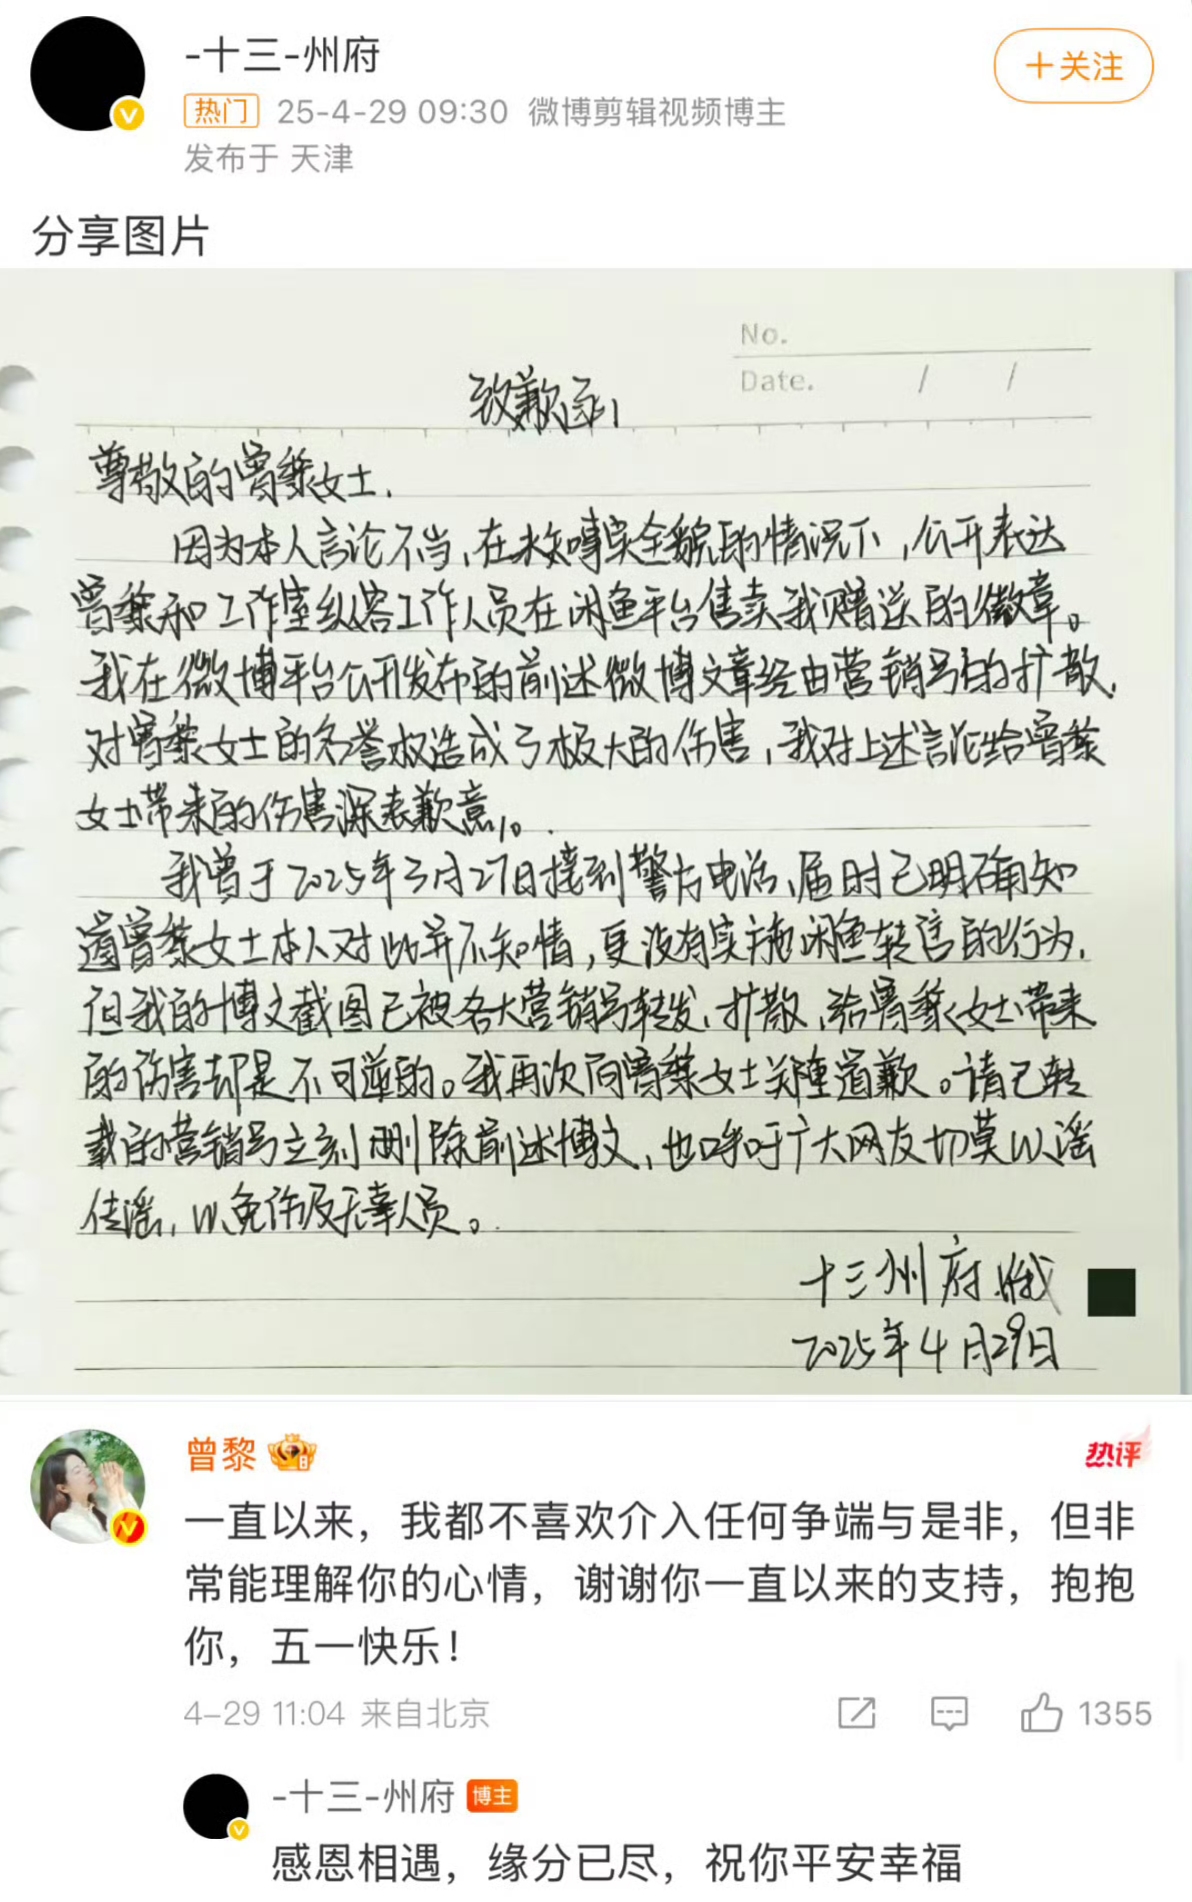 -十三-州府
+关注
热门 25-4-29 09:30 微博剪辑视频博主
发布于 天津
分享图片
No.
Date. / /
致歉函
尊敬的曾黎女士,
因为本人言论不当,在未知事实全貌的情况下,公开表达
曾黎和工作室纵容工作人员在闲鱼平台售卖我赠送的徽章。
我在微博平台公开发布的前述微博文章经由营销号的扩散,
对曾黎女士的名誉权造成了极大的伤害,我对上述言论给曾黎
女士带来的伤害深表歉意。
我曾于2025年3月27日接到警方电话,届时已明确知
道曾黎女士本人对此并不知情,更没有实施闲鱼转售的行为,
但我的博文截图已被各大营销号转发、扩散,给曾黎女士带来
的伤害却是不可逆的。我再次向曾黎女士关重道歉。请已转
载的营销号立刻删除前述博文,也呼吁广大网友切莫以谣
传谣,以免伤及无辜人员。
十三州府
2025年4月29日
曾黎
热评
一直以来,我都不喜欢介入任何争端与是非,但非
常能理解你的心情,谢谢你一直以来的支持,抱抱
你,五一快乐!
4-29 11:04 来自北京
1355
-十三-州府 博主
感恩相遇,缘分已尽,祝你平安幸福